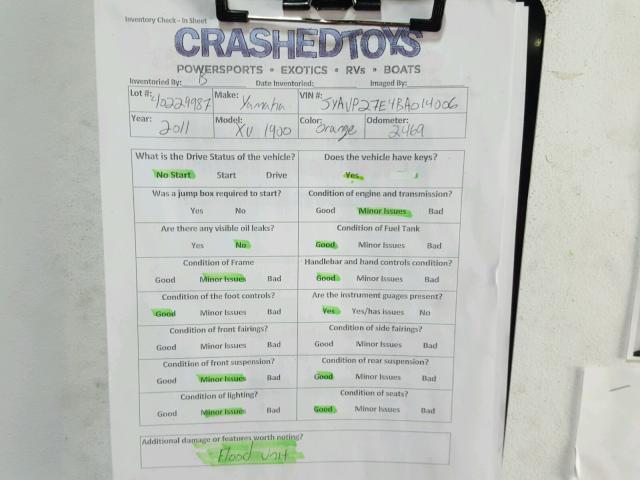 Inventory Check - In Sheet
CRASHEDTOYS
POWERSPORTS • EXOTICS • RVs • BOATS
Inventoried By: B Date Inventoried: Imaged By:
Lot #: 40229987 Make: Yamaha VIN #: JYAVP27E4BA014006
Year: 2011 Model: XV 1900 Color: Orange Odometer: 2469
What is the Drive Status of the vehicle? Does the vehicle have keys?
No Start Start Drive Yes
Was a jump box required to start? Condition of engine and transmission?
Yes No Good Minor Issues Bad
Are there any visible oil leaks? Condition of Fuel Tank
Yes No Good Minor Issues Bad
Condition of Frame Handlebar and hand controls condition?
Good Minor Issues Bad Good Minor Issues Bad
Condition of the foot controls? Are the instrument guages present?
Good Minor Issues Bad Yes Yes/has issues No
Condition of front fairings? Condition of side fairings?
Good Minor Issues Bad Good Minor Issues Bad
Condition of front suspension? Condition of rear suspension?
Good Minor Issues Bad Good Minor Issues Bad
Condition of lighting? Condition of seats?
Good Minor Issues Bad Good Minor Issues Bad
Additional damage or features worth noting?
Flood unit